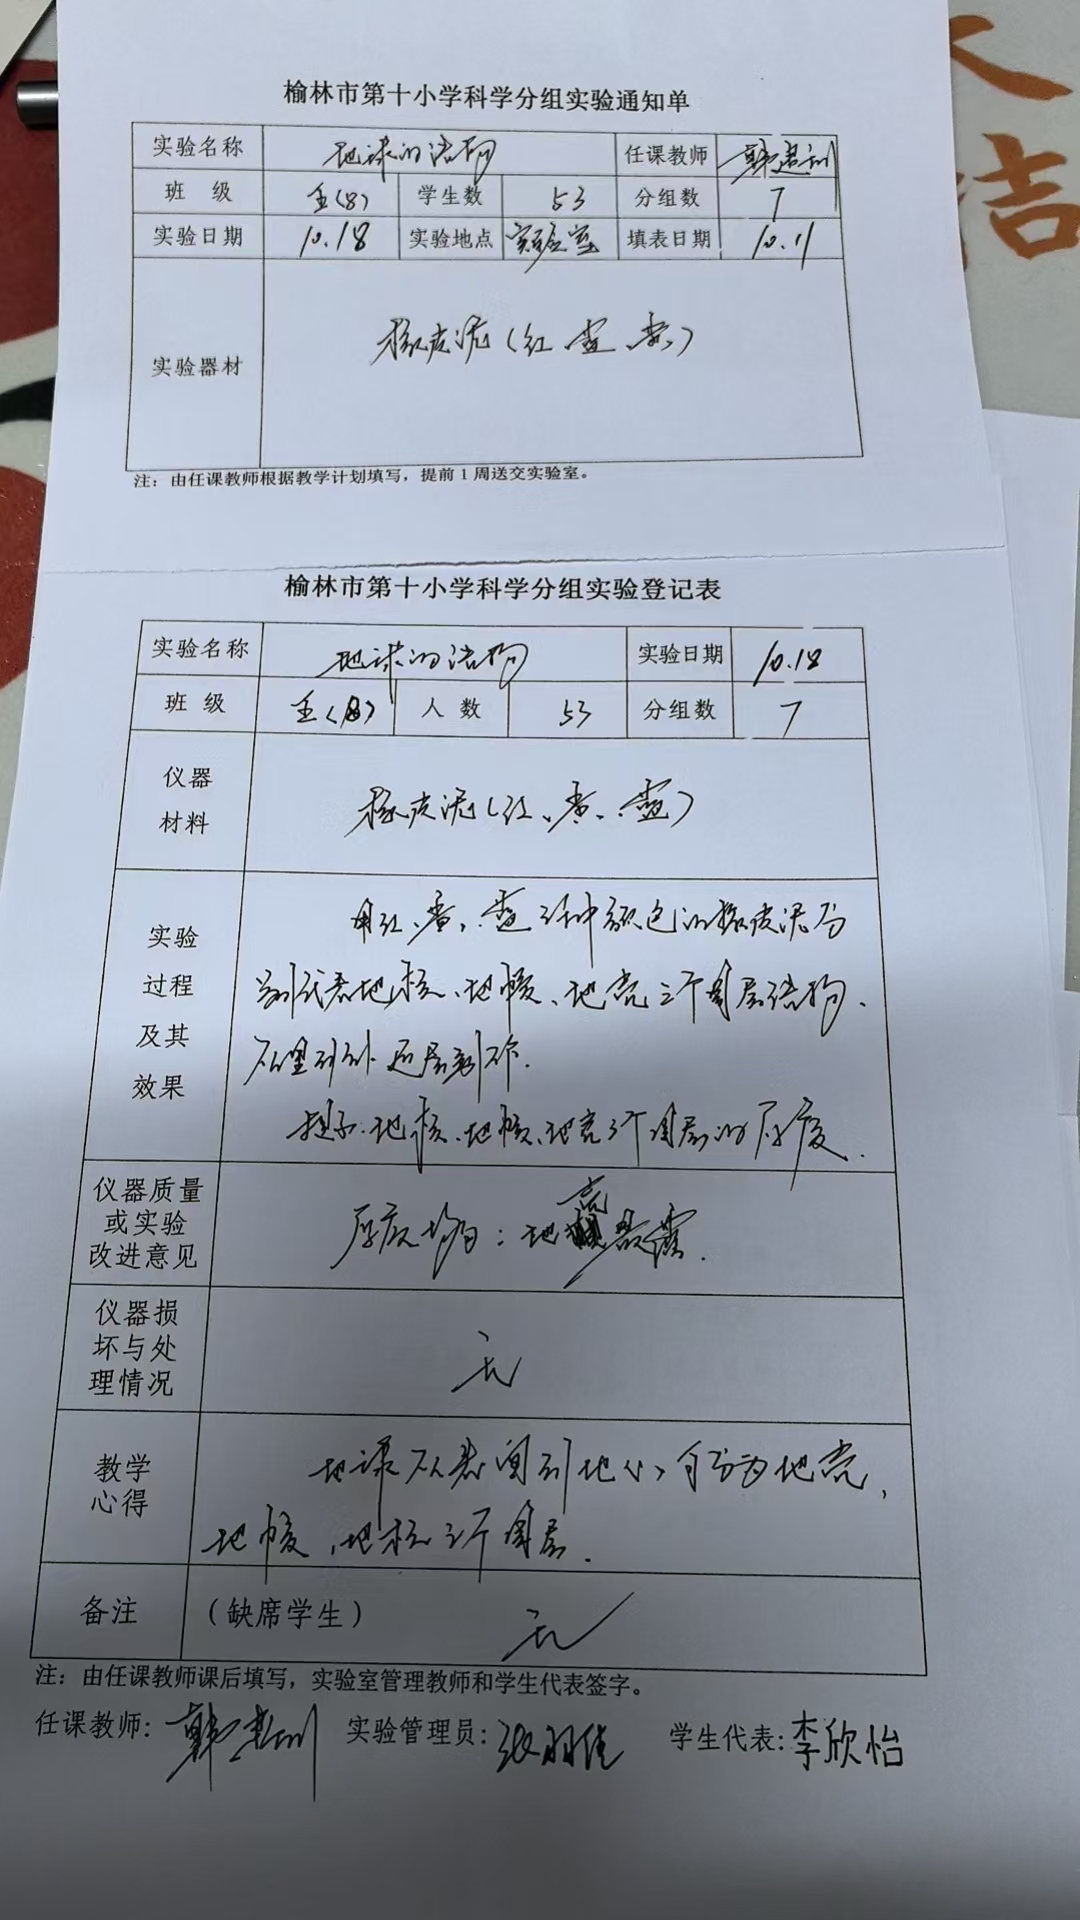 榆林市第十小学科学分组实验通知单
实验名称 地球的结构 任课教师
班 级 五(8) 学生数 53 分组数 7
实验日期 10.18 实验地点 实验室 填表日期 10.11
实验器材 橡皮泥(红、蓝、黄)
注：由任课教师根据教学计划填写，提前1周送交实验室。
榆林市第十小学科学分组实验登记表
实验名称 地球的结构 实验日期 10.18
班 级 五(8) 人 数 53 分组数 7
仪器
材料
橡皮泥(红、黄、蓝)
实验
过程
及其
效果
用红、黄、蓝三种颜色的橡皮泥分
别代表地核、地幔、地壳三个圈层结构.
从里到外逐层制作.
提示:地核、地幔、地壳3个圈层的厚度.
仪器质量
或实验
改进意见
厚度均匀:地壳最薄.
仪器损
坏与处
理情况
无
教学
心得
地球从表面到地心,可分为地壳,
地幔,地核三个圈层.
备注 (缺席学生) 无
注：由任课教师课后填写，实验室管理教师和学生代表签字。
任课教师: 实验管理员:张羽佳 学生代表:李欣怡
洁